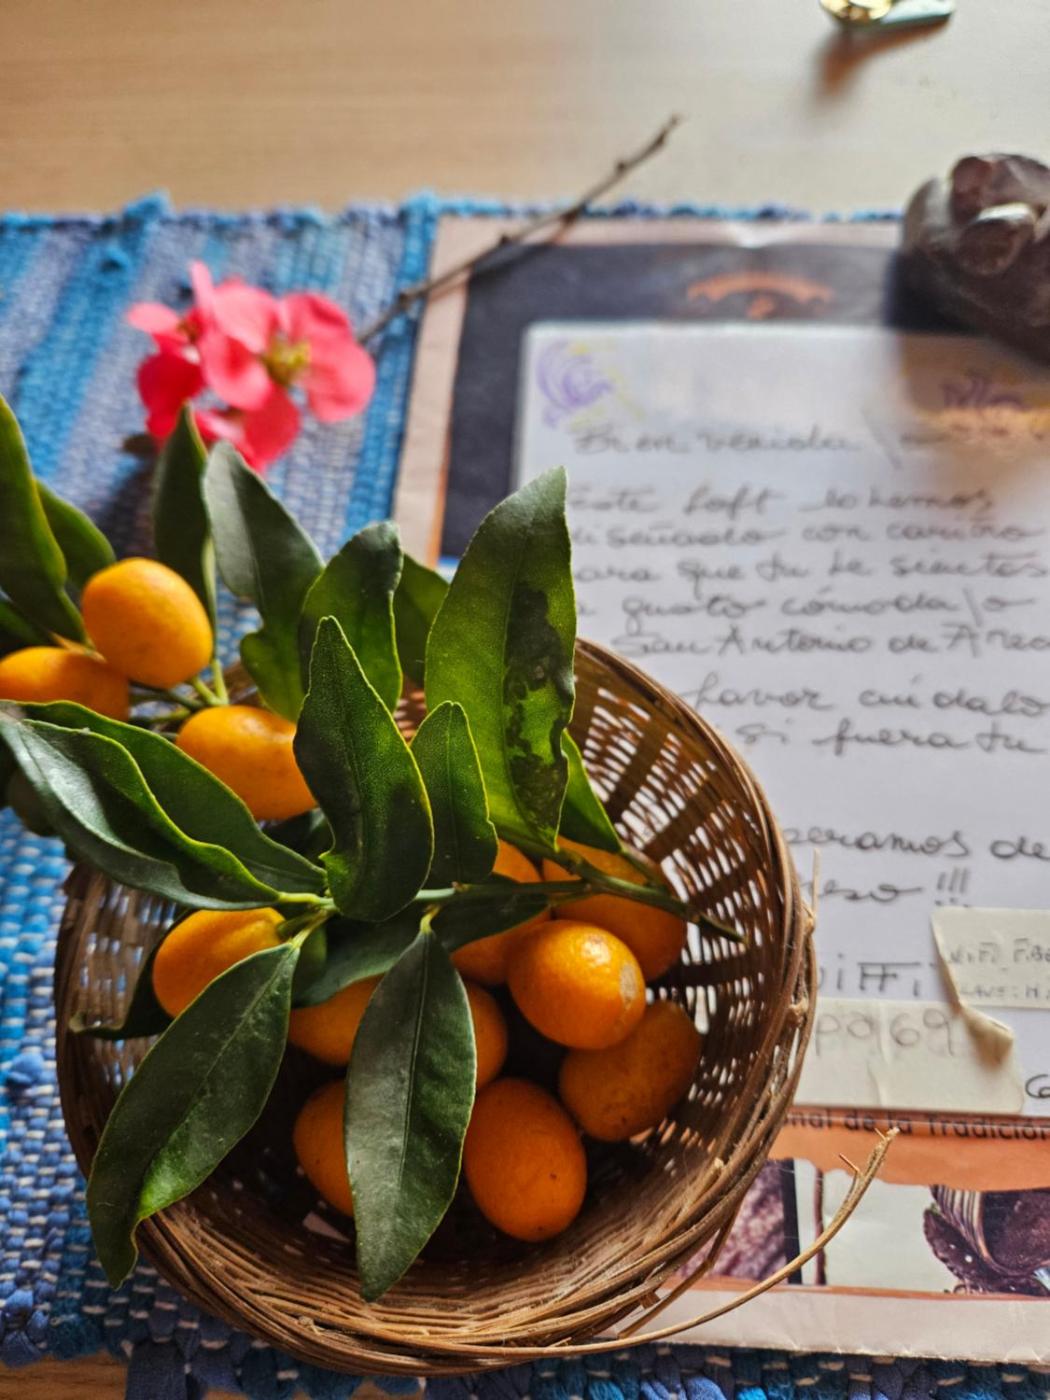 Bien venida/
Este Loft lo hemos
diseñado con cariño
para que tu te sientas
a gusto cómoda/o
San Antonio de Areco
favor cuídalo
si fuera tu
peramos de
eso !!!
WiFFi
pag69
nal de la Tradición